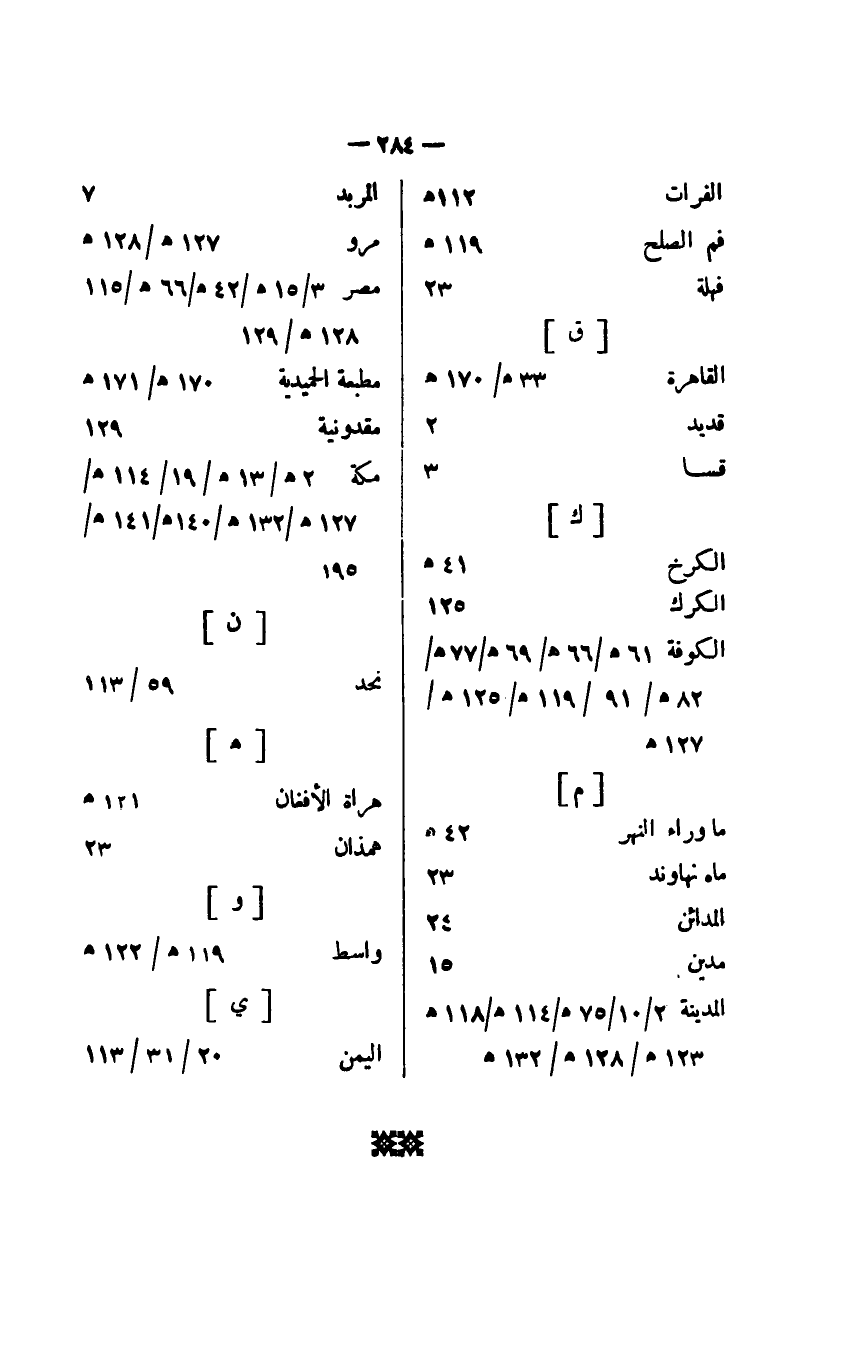 — ٢٨٤ —
الفرات ١١٢ه
فم الصلح ١١٩ ه
فهلة ٢٣
[ ق ]
القاهرة ٣٣ ه/ ١٧٠ ه
قديد ٢
قسـا ٣
[ ك ]
الكرخ ٤١ ه
الكرك ١٢٥
الكوفة ٦١ ه /٦٦ ه/ ٦٩ ه/٧٧ه/
٨٢ ه/ ٩١ / ١١٩ ه/ ١٢٥ ه /
١٢٧ ه
[ م ]
ما وراء النهر ٤٢ ه
ماه نهاوند ٢٣
المدائن ٢٤
مدين ١٥
المدينة ٢/ ١٠/ ٧٥ ه/ ١١٤ ه/١١٨ ه
١٢٣ ه/ ١٢٨ ه/ ١٣٢ ه
المربد ٧
مرو ١٢٧ ه/ ١٢٨ ه
مصر ٣/ ١٥ ه/ ٤٢ ه/٦٦ ه /١١٥
١٢٨ ه/ ١٢٩
مطبعة الحميدية ١٧٠ ه/ ١٧١ ه
مقدونية ١٢٩
مكة ٢ ه/ ١٣ ه/ ١٩/ ١١٤ ه/
١٢٧ ه/ ١٣٢ ه/١٤٠ه/١٤١ ه/
١٩٥
[ ن ]
نجد ٥٩ / ١١٣
[ ه ]
هراة الأفغان ١٢١ ه
همذان ٢٣
[ و ]
واسط ١١٩ ه / ١٢٢ ه
[ ي ]
اليمن ٢٠ / ٣١ / ١١٣